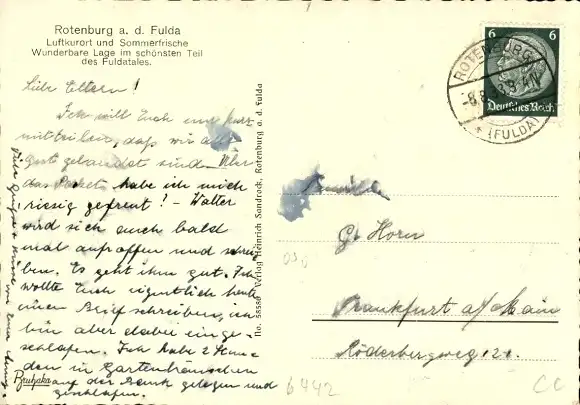 Rotenburg a. d. Fulda
Luftkurort und Sommerfrische
Wunderbare Lage im schönsten Teil
des Fuldatales.
Liebe Eltern!
Ich will Euch nur kurz
mitteilen, daß wir alle
gut gelandet sind. Über
das Packet habe ich mich
riesig gefreut! - Walter
wird sich auch bald
mal aufraffen und schrei-
ben. Es geht ihm gut. Ich
wollte Euch eigentlich heute
einen Brief schreiben, ich
bin aber dabei einge-
schlafen. Ich habe 2 Stun-
den in Gartenhäuschen
auf der Bank gelegen und
geschlafen.
Viele Grüße
Bruhaka
No. 58580 Verlag Heinrich Sandrock, Rotenburg a. d. Fulda
6 6
Deutsches Reich
ROTENBURG
(FULDA)
Familie
Gg Horn
Frankfurt a/Main
Röderbergweg 121.
6442
CC